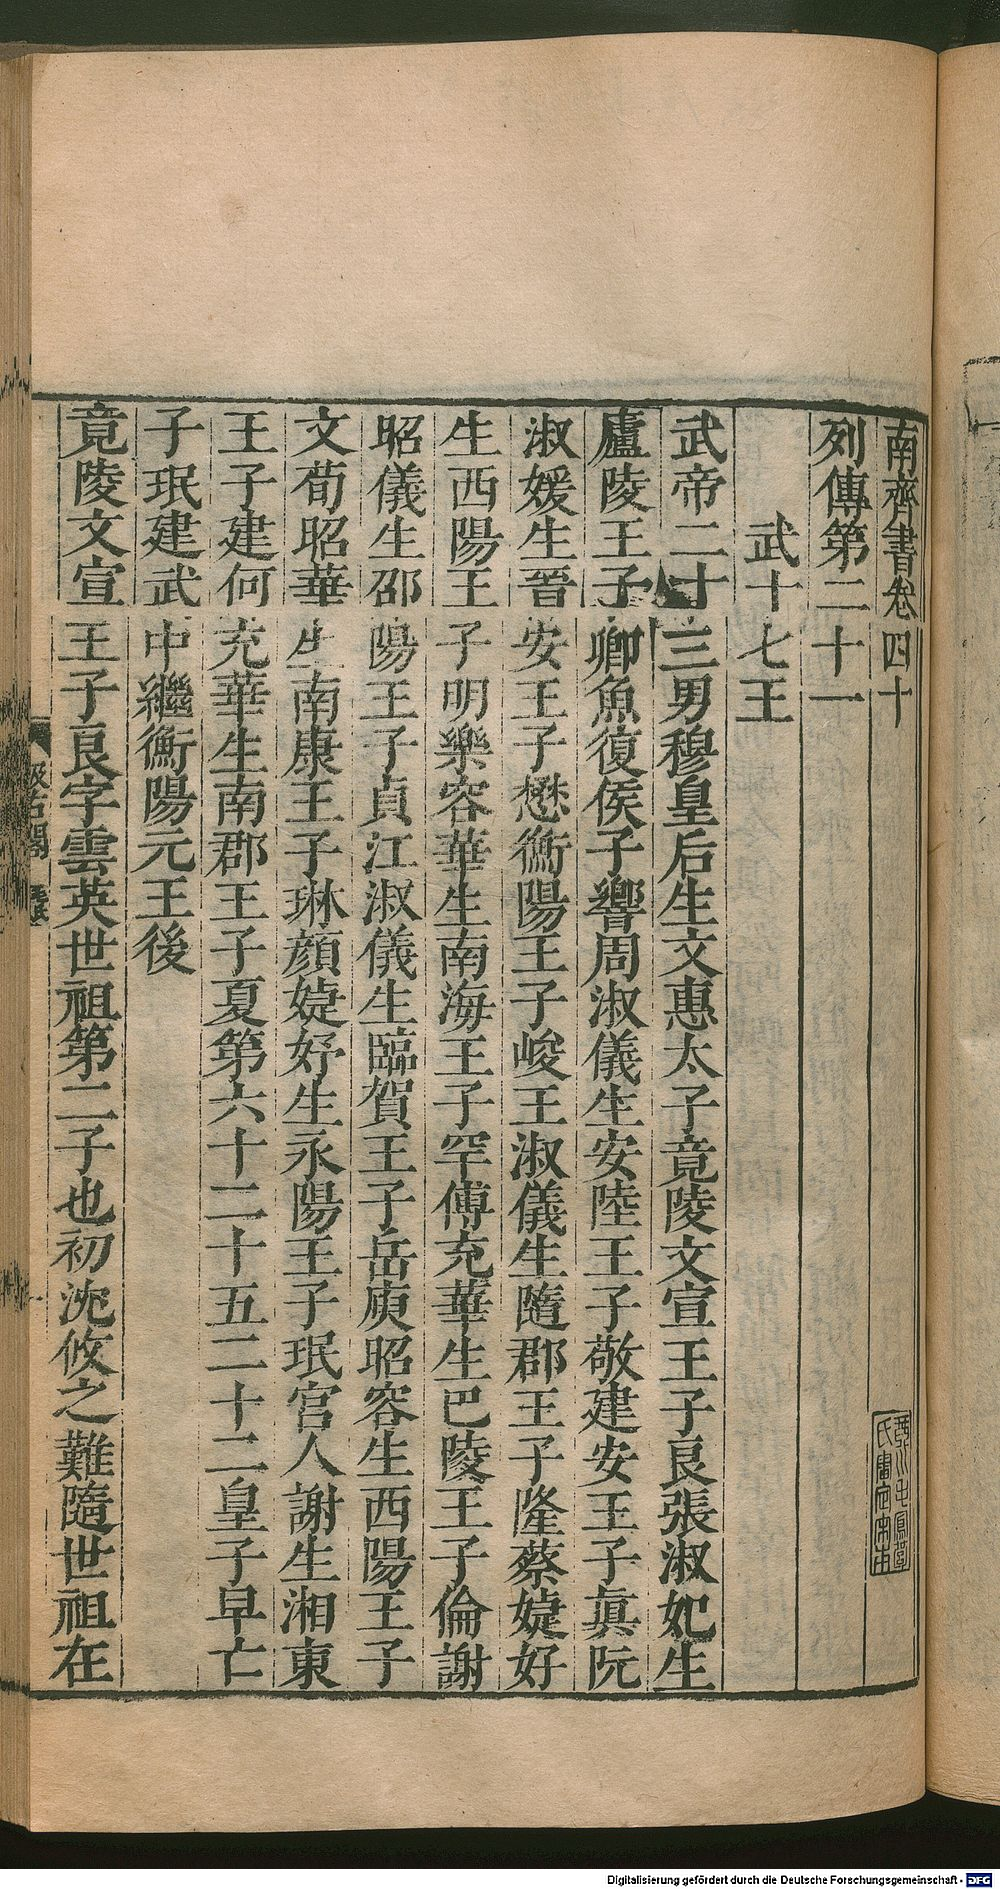 南齊書卷四十
列傳第二十一
武十七王
武帝二十三男穆皇后生文惠太子竟陵文宣王子良張淑妃生
廬陵王子卿魚復侯子響周淑儀生安陸王子敬建安王子真阮
淑媛生晉安王子懋衡陽王子峻王淑儀生隨郡王子隆蔡婕妤
生西陽王子明樂容華生南海王子罕傅充華生巴陵王子倫謝
昭儀生邵陽王子貞江淑儀生臨賀王子岳庾昭容生西陽王子
文荀昭華生南康王子琳顏婕妤生永陽王子珉宮人謝生湘東
王子建何充華生南郡王子夏第六十二十五二十二皇子早亡
子珉建武中繼衡陽元王後
竟陵文宣王子良字雲英世祖第二子也初沈攸之難隨世祖在
汲古閣
毛氏
Digitalisierung gefördert durch die Deutsche Forschungsgemeinschaft - DFG